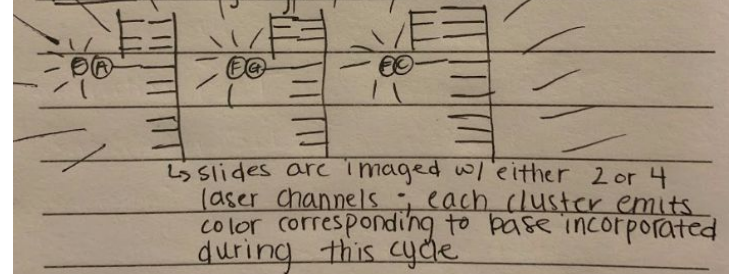 F A F G F C
↳ slides are imaged w/ either 2 or 4
laser channels ; each cluster emits
color corresponding to base incorporated
during this cycle